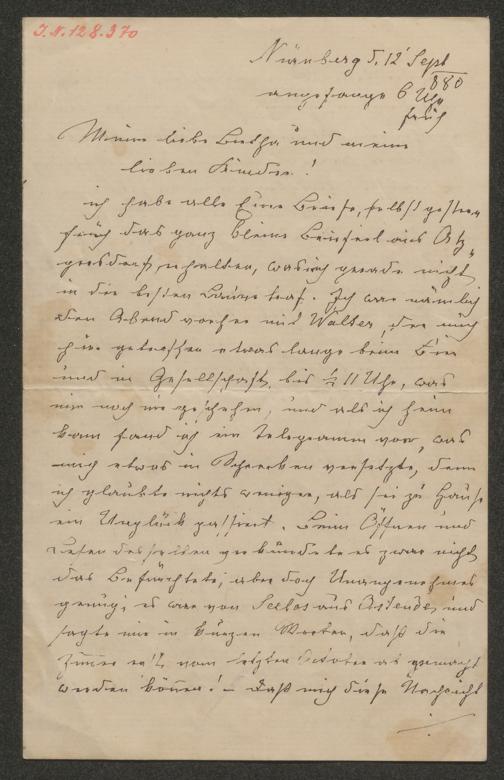 J.N. 128.370
Nürnberg d. 12t Sept
880
angefangen 6 Uhr
früh
Meine liebe Bertha und meine
lieben Kinder!
ich habe alle Eure Briefe, selbst gestern
früh das ganz kleine Brieferl aus Atz„
gersdorf erhalten, was ich gerade nicht
in der besten Laune traf. Ich war nämlich
den Abend vorher mit Walter, der mich
hier getroffen etwas lange beim Bier
und in Gesellschaft, bis ½ 11 Uhr, was
mir noch nie geschehen, und als ich heim
kam fand ich ein Telegramm vor, was
mich etwas in Schrecken versetzte, denn
ich glaubte nichts weniger, als sei zu Hause
ein Unglück passiert. Beim Öffnen und
Lesen desselben verkündete es zwar nicht
das Befürchtete, aber doch Unangenehmes
genug; es war von Seelos aus Ostende, und
sagte mir in kurzen Worten, daß die
Zimmer erst vom letzten October ab gemacht
werden können! – daß mich diese Nachricht